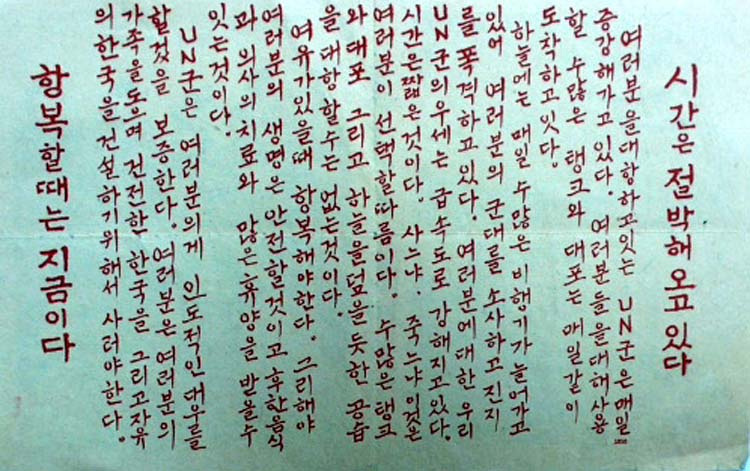 시간은 절박해 오고 있다
여러분을대항하고잇는 UN군은매일
증강해가고 있다. 여러분들을대해사용
할 수많은 탱크와 대포는 매일같이
도착하고잇다.
하늘에는 매일 수많은 비행기가늘어가고
있어 여러분의 군대를 소사하고 진지
를 폭격하고 있다. 여러분에대한 우리
UN군의우세는 급속도로 강해지고있다.
시간은짧은것이다. 사느냐. 죽느냐이것은
여러분이 선택할따름이다. 수많은탱크
와대포 그리고 하늘을덮을듯한 공습
을대항할수는 없는것이다.
여유가있을때 항복해야한다. 그리해야
여러분의 생명은 안전할것이고후한음식
과 의사의치료와 많은휴양을 받을수
잇는것이다.
UN군은 여러분의게 인도적인대우를
할것을 보증한다. 여러분은 여러분의
가족을도으며 건전한 한국을 그리고자유
의한국을건설하기위해서 사러야한다.
항복할때는 지금이다